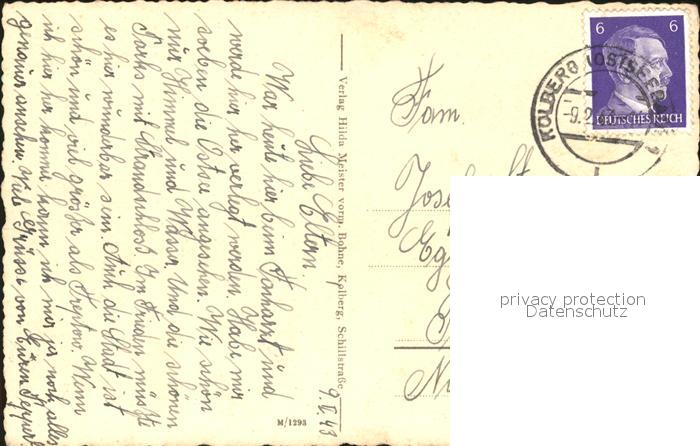 9.II.43
Liebe Eltern.
War heute hier beim Bahnarzt und
werde hier her verlegt werden. Habe mir
soeben die Ostsee angesehen. Wie schön
nur Himmel und Wasser. Und die schönen
Parks mit Strandschloß. Im Frieden müßte
es hier wunderbar sein. Auch die Stadt ist
schön und viel größer als Treptow. Wenn
ich hier her komme kann ich mir ja noch alles
genauer ansehen. Viele Grüsse von Euren
Verlag Hilda Meister vorm. Bohne, Kolberg, Schillstraße
M/1293
6 6
DEUTSCHES REICH
KOLBERG (OSTSEEBAD)
-9.2.
Fam.
privacy protection
Datenschutz